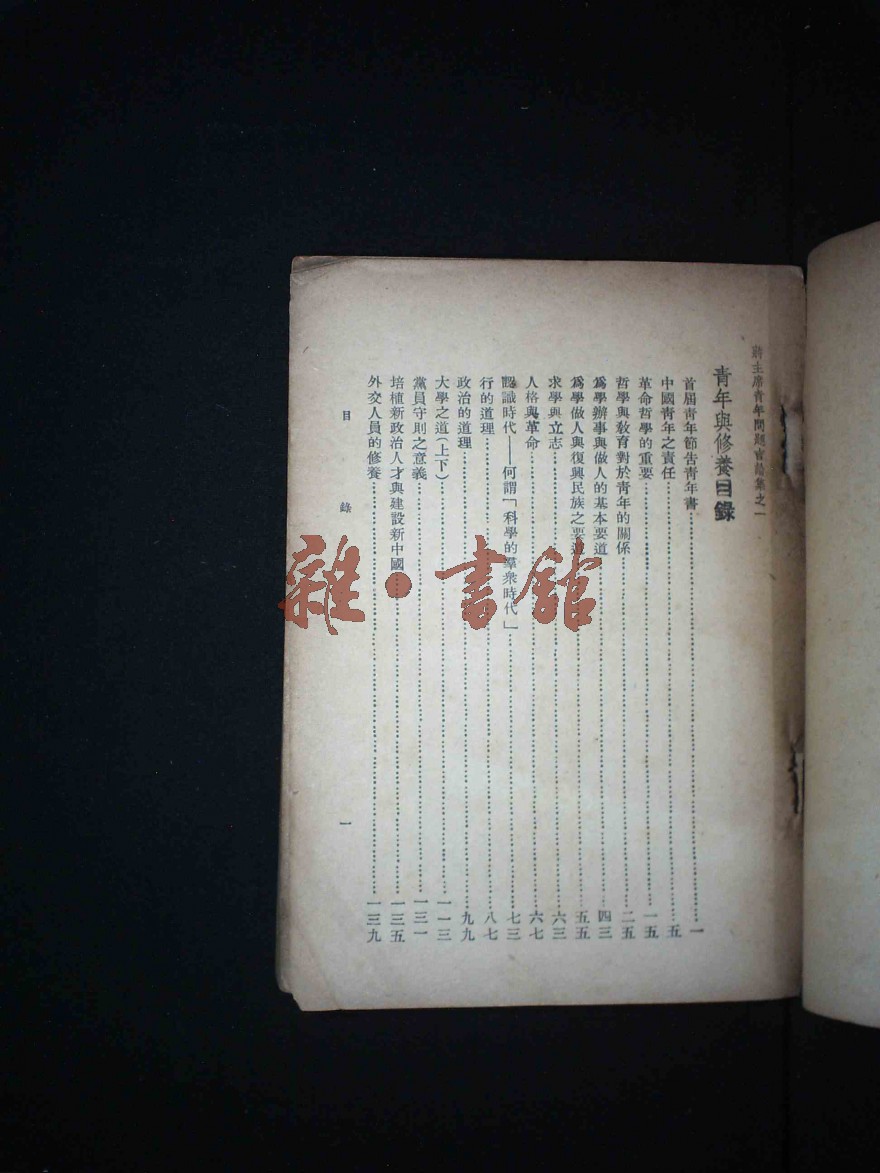 蔣主席青年問題言論集之一
青年與修養目錄
首屆青年節告青年書……一
中國青年之責任……五
革命哲學的重要……一五
哲學與教育對於青年的關係……二五
爲學辦事與做人的基本要道……四三
爲學做人與復興民族之要道……五五
求學與立志……六三
人格與革命……六七
認識時代——何謂「科學的羣衆時代」……七三
行的道理……八七
政治的道理……九九
大學之道(上下)……一一三
黨員守則之意義……一三一
培植新政治人才與建設新中國……一三五
外交人員的修養……一三九
目錄 一
雜·書館